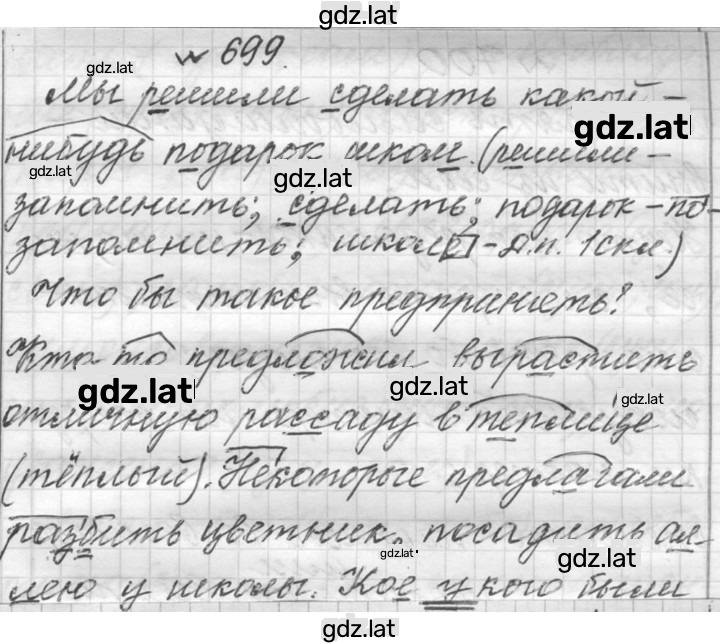 gdz.lat
№ 699.
gdz.lat
Мы решили сделать какой-
gdz.lat
нибудь подарок школе. (решили-
gdz.lat
gdz.lat
запомнить; сделать; подарок - по-
запомнить; школе - Д.п. 1 скл.)
Что бы такое предпринять?
Кто то предложил вырастить
gdz.lat
gdz.lat
gdz.lat
отличную рассаду в теплице
(тёплый). Некоторые предлагали
разбить цветник, посадить ал-
gdz.lat
gdz.lat
лею у школы. Кое у кого были
gdz.lat